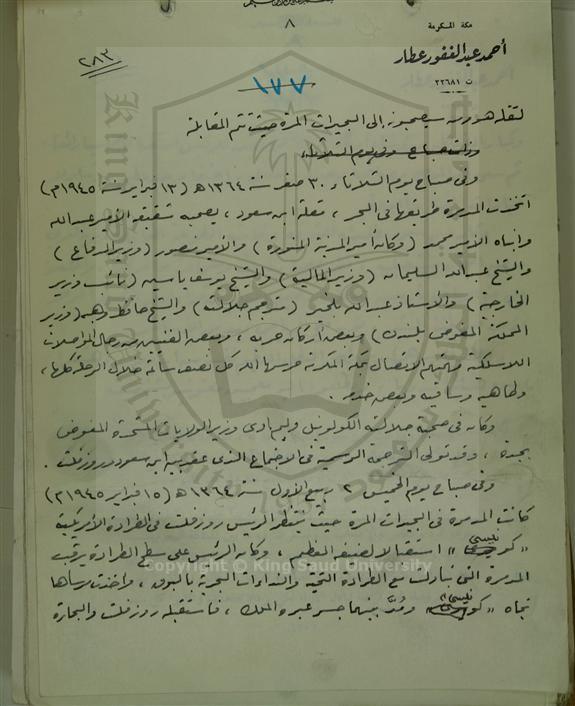 ٨
مكة المكرمة
أحمد عبد الغفور عطار
ت ٢٢٦٨١
٢٨٣
١٧٧
لتقله هو ومن سيصحبونه إلى البحيرات المرة حيث تتم المقابلة
وفي صباح يوم الثلاثاء
وفي صباح يوم الثلاثاء ٣٠ صفر سنة ١٣٦٤هـ (١٣ فبراير سنة ١٩٤٥م)
اتخذت المدمرة طريقها في البحر، تقلّ ابن سعود، يصحبه شقيقه الأمير عبد الله
وابناه الأمير محمد (وكان أمير المدينة المنورة) والأمير منصور (وزير الدفاع)
والشيخ عبد الله السليمان (وزير المالية) والشيخ يوسف ياسين (نائب وزير
الخارجية) والأستاذ عبد الله بلخير (مترجم جلالته) والشيخ حافظ وهبه (وزير
المملكة المفوض بلندن) وبعض أركان حربه، وبعض الفنيين من رجال المواصلات
اللاسلكية مهمتهم الاتصال بمكة المكرمة كل نصف ساعة خلال الرحلة كلها،
وطاهيه وساقيه وبعض خدمه.
وكان في صحبة جلالته الكولونيل وليم ادى وزير الولايات المتحدة المفوض
بجدة، وقد تولى الترجمة الرسمية في الاجتماع الذى عقد بين ابن سعود وروزفلت.
وفي صباح يوم الخميس ٢ ربيع الأول سنة ١٣٦٤هـ (١٥ فبراير ١٩٤٥م)
كانت المدمرة في البحيرات المرة حيث ينتظر الرئيس روزفلت في الطرادة الأمريكية
«كونسي» استقبالا لضيفه العظيم، وكان الرئيس على سطح الطرادة يرقب
المدمرة التي تبادلت مع الطرادة التحية والنداءات البحرية بالبوق، واخذت رسأها
تجاه «كونسي» ومُدَّ بينهما جسر عبره الملك، فاستقبله روزفلت والبحارة
Copyright © King Saud University
King Saud University